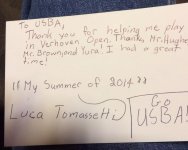 To USBA,
Thank you for helping me play
in Verhoven Open. Thanks Mr. Hughe
Mr. Brown, and Yura! I had a great
time!
My Summer of 2014
Luca Tomasse Hi
Go
USBA!